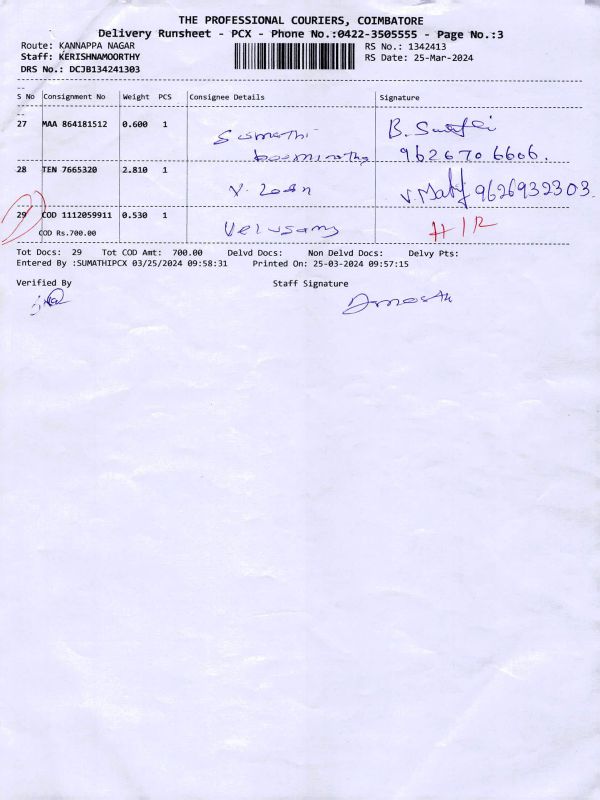 THE PROFESSIONAL COURIERS, COIMBATORE
Delivery Runsheet - PCX - Phone No.:0422-3505555 - Page No.:3
Route: KANNAPPA NAGAR RS No.: 1342413
Staff: KERISHNAMOORTHY RS Date: 25-Mar-2024
DRS No.: DCJB134241303
S No Consignment No Weight PCS Consignee Details Signature
27 MAA 864181512 0.600 1 Sumathi B.
9626706606.
28 TEN 7665320 2.810 1 V. V. 9626932303.
29 COD 1112059911 0.530 1 Velusamy H/R
COD Rs.700.00
Tot Docs: 29 Tot COD Amt: 700.00 Delvd Docs: Non Delvd Docs: Delvy Pts:
Entered By :SUMATHIPCX 03/25/2024 09:58:31 Printed On: 25-03-2024 09:57:15
Verified By Staff Signature